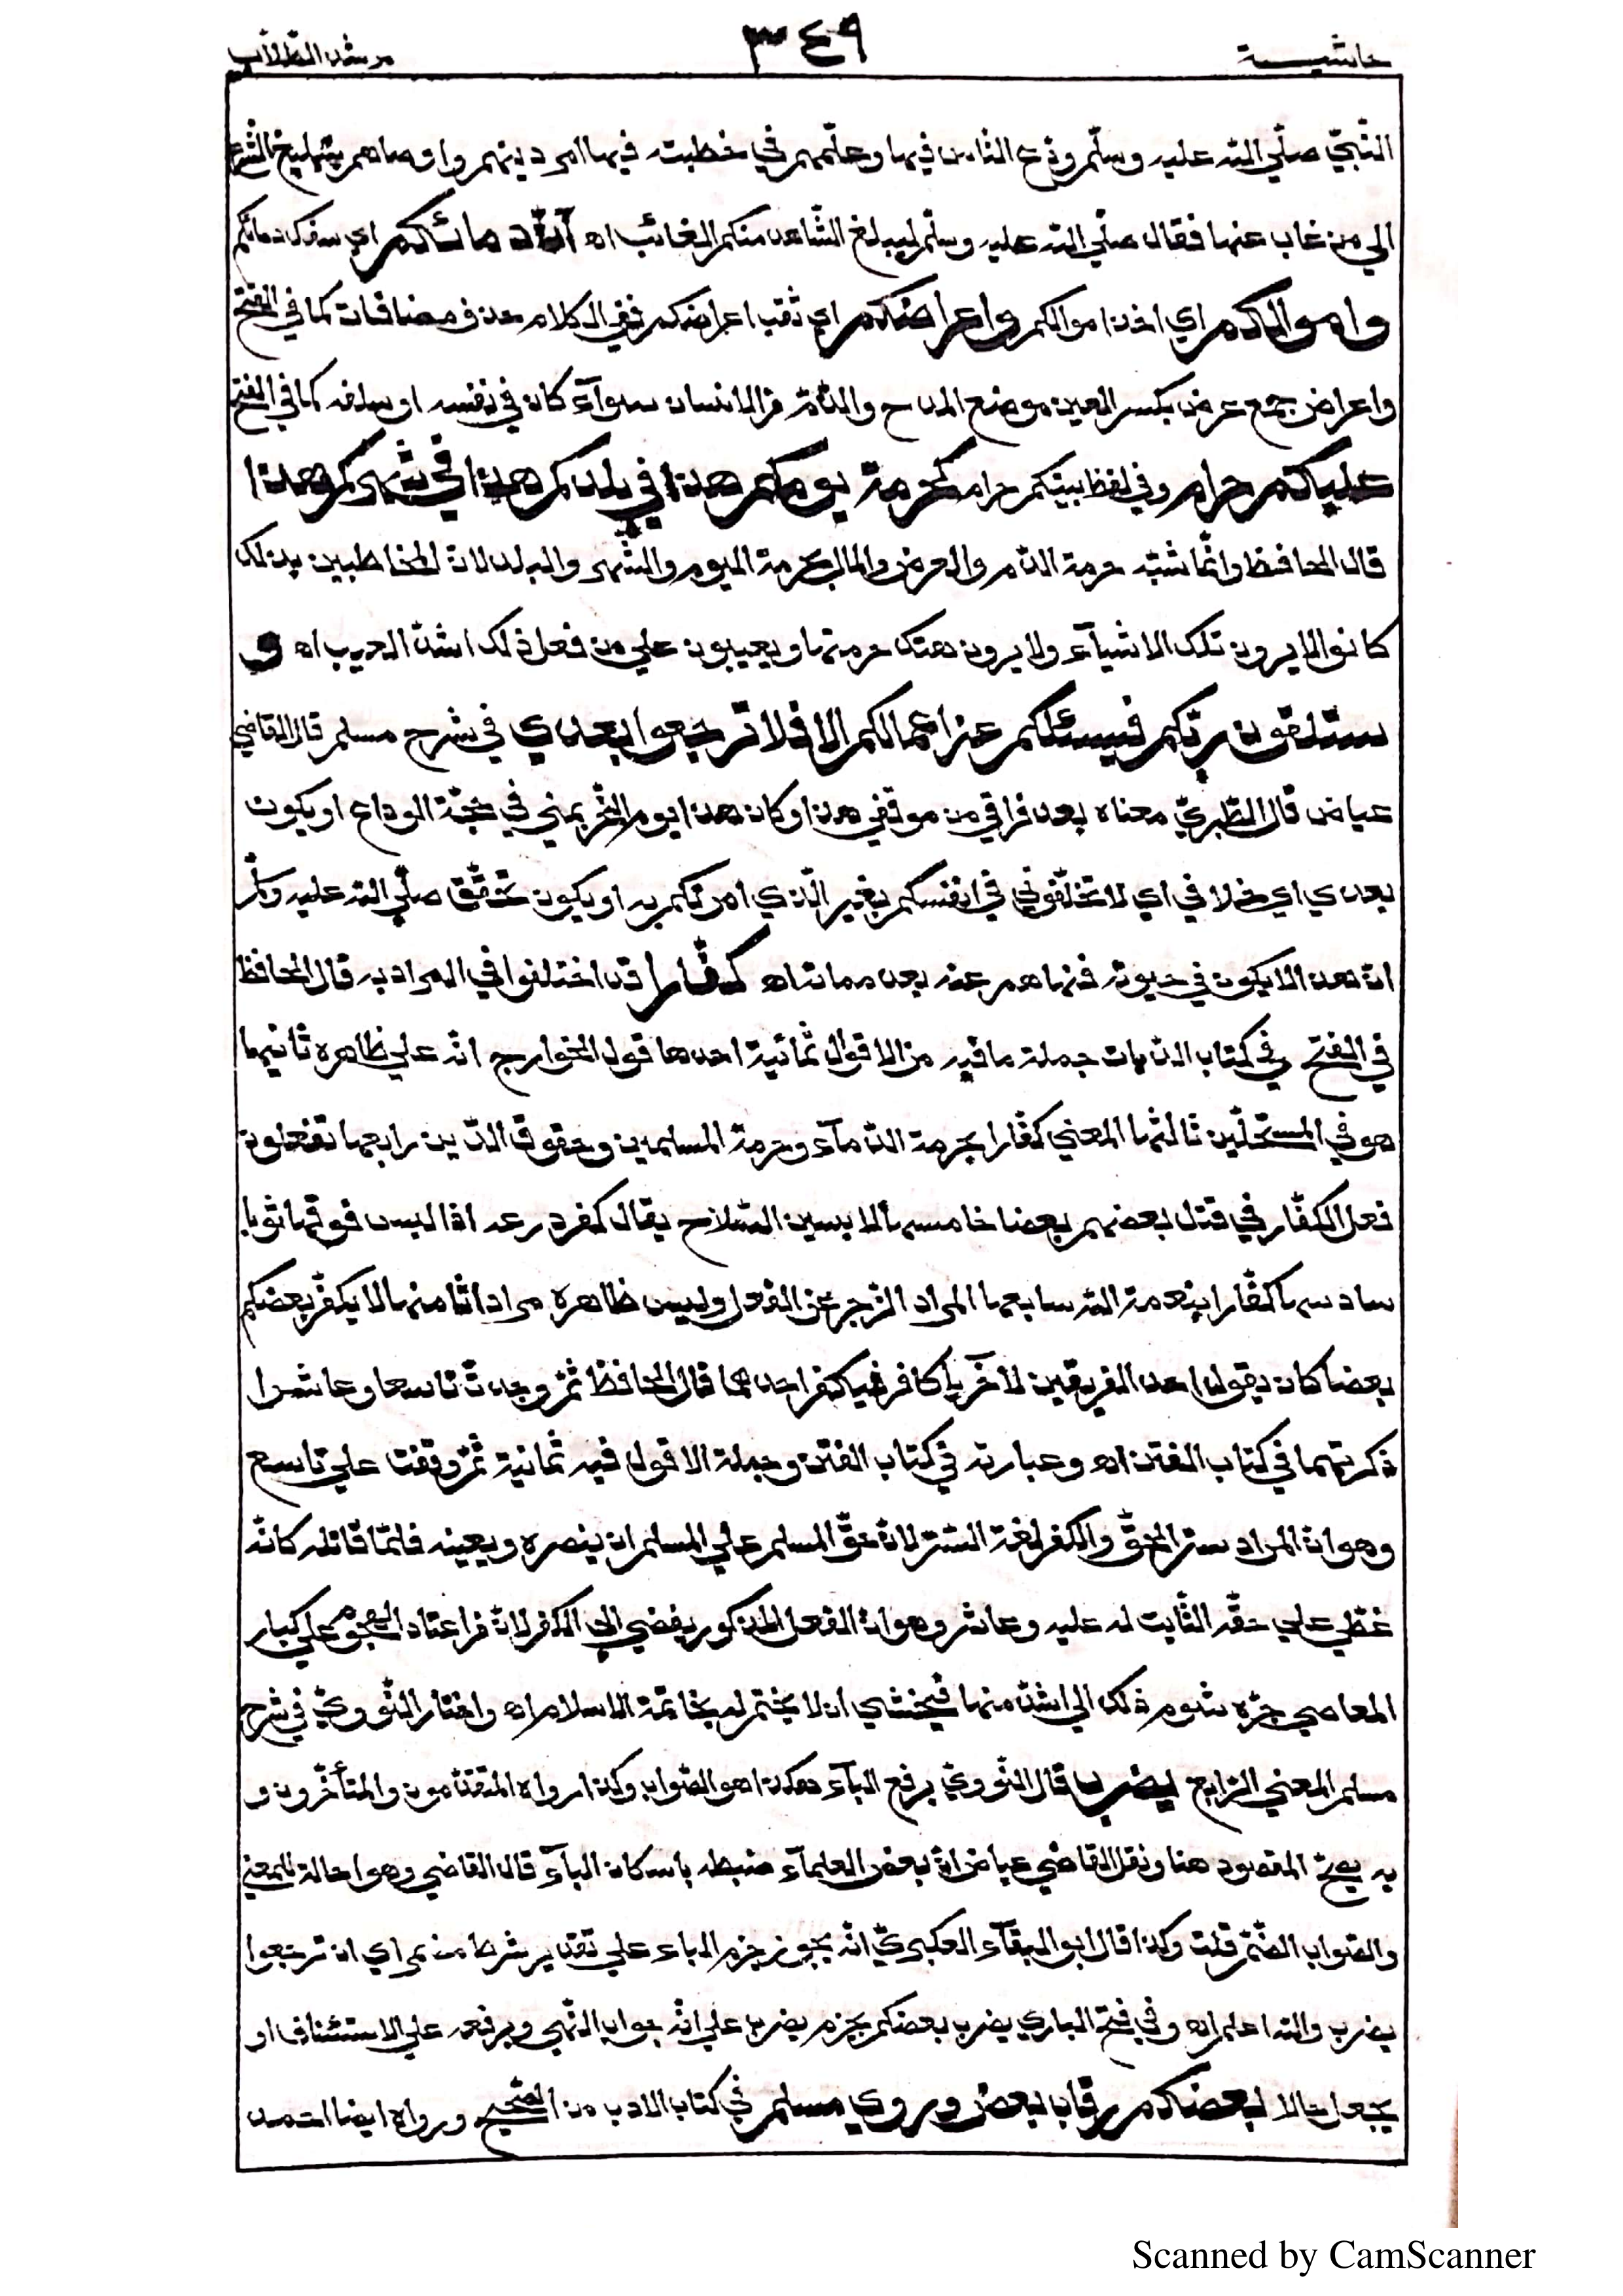 حاشيـــة ٣٤٩ مرشد الطّلّاب
النّبيّ صلّي الله عليه وسلّم ودّع النّاس فيها وعلّمهم في خطبته فيها امر دينهم واوصاهم بتبليغ الشّرع
الي من غاب عنها فقال صلّي الله عليه وسلّم ليبلغ الشّاهد منكم الغائب اه انّ دمائكم اي سفك دمائكم
واموالكم اي اخذ اموالكم واعراضكم اي ثلب اعراضكم ففي الكلام حذف مضافات كما في الفتح
واعراض جمع عرض بكسر العين موضع المدح والذّمّ من الانسان سوآء كان في نفسه او سلفه كما في الفتح
عليكم حرام وفي لفظ بينكم حرام كحرمة يومكم هذا في بلدكم هذا في شهركم هذا
قال الحافظ وانّما شبّه حرمة الدّم والعرض والمال بحرمة اليوم والشّهر والبلد لانّ المخاطبين بذلك
كانوا لا يرون تلك الاشيآء ولا يرون هتك حرمتها ويعيبون علي من فعل ذلك اشدّ العيب اه و
ستلقون ربّكم فيسئلكم عن اعمالكم الا فلا ترجعوا بعدي في شرح مسلم قال القاضي
عياض قال الطّبريّ معناه بعد فراقي من موقفي هذا وكان هذا يوم النّحر بمني في حجّة الوداع او يكون
بعدي اي خلافي اي لا تخلّفوني في انفسكم بغير الّذي امرتكم به او يكون تحقّق صلّي الله عليه وسلّم
انّ هذا لا يكون في حيوته فنهاهم عنه بعد مماته اه كفّارا قد اختلفوا في المراد به قال الحافظ
في الفتح في كتاب الدّيات جملة ما فيه من الاقوال ثمانية احدها قول الخوارج انّه علي ظاهره ثانيها
هو في المستحلّين ثالثها المعني كفّارا بحرمة الدّمآء وحرمة المسلمين وحقوق الدّين رابعها تفعلون
فعل الكفّار في قتل بعضهم بعضا خامسها لابسين السّلاح يقال كفر درعه اذا لبس فوقها ثوبا
سادسها كفّارا بنعمة الله سابعها المراد الزّجر عن الفعل وليس ظاهره مرادا ثامنها لا يكفّر بعضكم
بعضا كان يقول احد الفريقين للآخر يا كافر فيكفر احدهما قال الحافظ ثمّ وجدت تاسعا وعاشرا
ذكرتهما في كتاب الفتن اه وعبارته في كتاب الفتن وجملة الاقول فيه ثمانية ثمّ وقفت علي تاسع
وهو انّ المراد ستر الحقّ والكفر لغة السّتر لانّ حقّ المسلم علي المسلم ان ينصره ويعينه فلمّا قاتله كانّه
غطّي علي حقّه الثّابت له عليه وعاشر وهو انّ الفعل المذكور يفضي الي الكفر لانّ من اعتاد الهجوم علي كبار
المعاصي جرّه شوم ذلك الي اشدّ منها فيخشي ان لا يختم له بخاتمة الاسلام اه واختار النّوويّ في شرح
مسلم المعني الرّابع يضرب قال النّوويّ برفع البآء هكذا هو الصّواب وكذا رواه المتقدّمون والمتأخّرون و
به يصحّ المقصود هنا ونقل القاضي عياض انّ بعض العلمآء ضبطه باسكان البآء قال القاضي وهو احالة للمعني
والصّواب الضّمّ قلت وكذا قال ابو البقآء العكبريّ انّه يجوز جزم الباء علي تقدير شرط مضمر اي ان ترجعوا
يضرب والله اعلم اه وفي فتح الباري يضرب بعضكم بجزم يضرب علي انّه جواب النّهي وبرفعه علي الاستئناف او
يجعل حالا بعضكم رقاب بعض وروي مسلم في كتاب الادب من الصّحيح ورواه ايضا احمد
Scanned by CamScanner